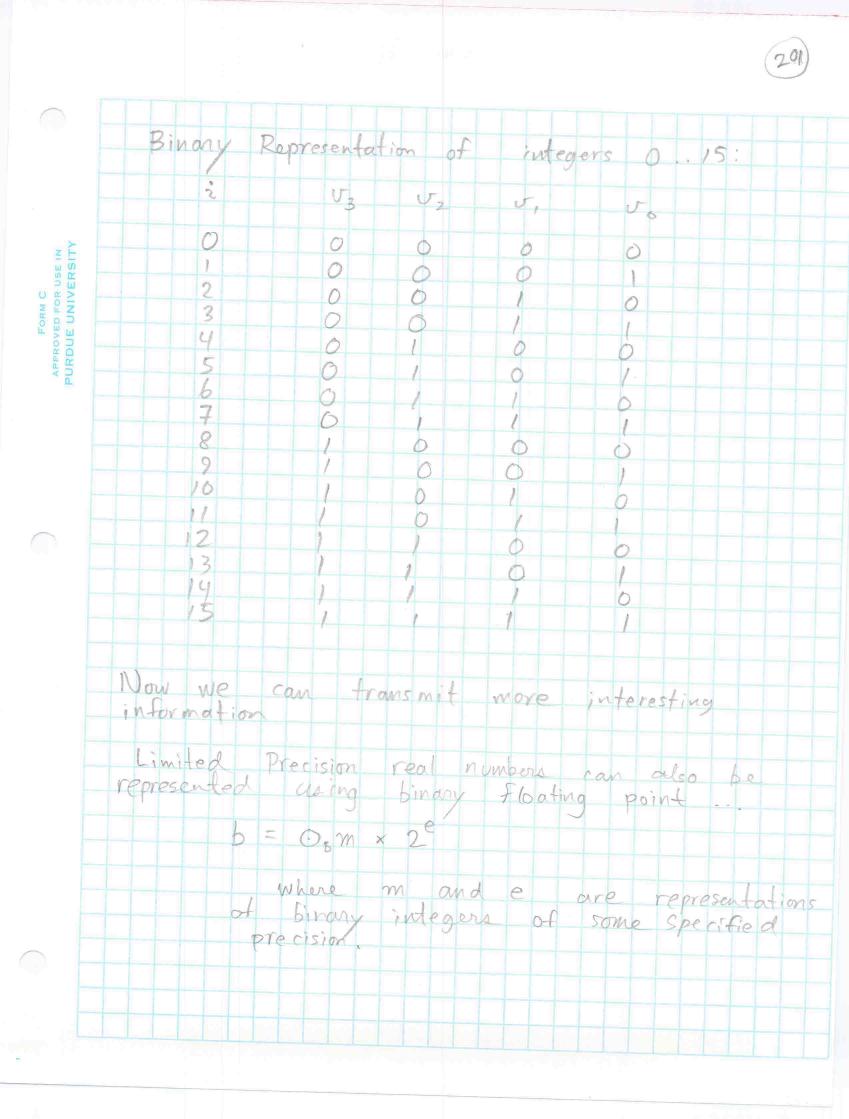 201
FORM C
APPROVED FOR USE IN
PURDUE UNIVERSITY
Binary Representation of integers 0 .. 15:
i v3 v2 v1 v0
0 0 0 0 0
1 0 0 0 1
2 0 0 1 0
3 0 0 1 1
4 0 1 0 0
5 0 1 0 1
6 0 1 1 0
7 0 1 1 1
8 1 0 0 0
9 1 0 0 1
10 1 0 1 0
11 1 0 1 1
12 1 1 0 0
13 1 1 0 1
14 1 1 1 0
15 1 1 1 1
Now we can transmit more interesting
information
Limited Precision real numbers can also be
represented using binary floating point ...
b = 0.m × 2^e
where m and e are representations
of binary integers of some specified
precision.